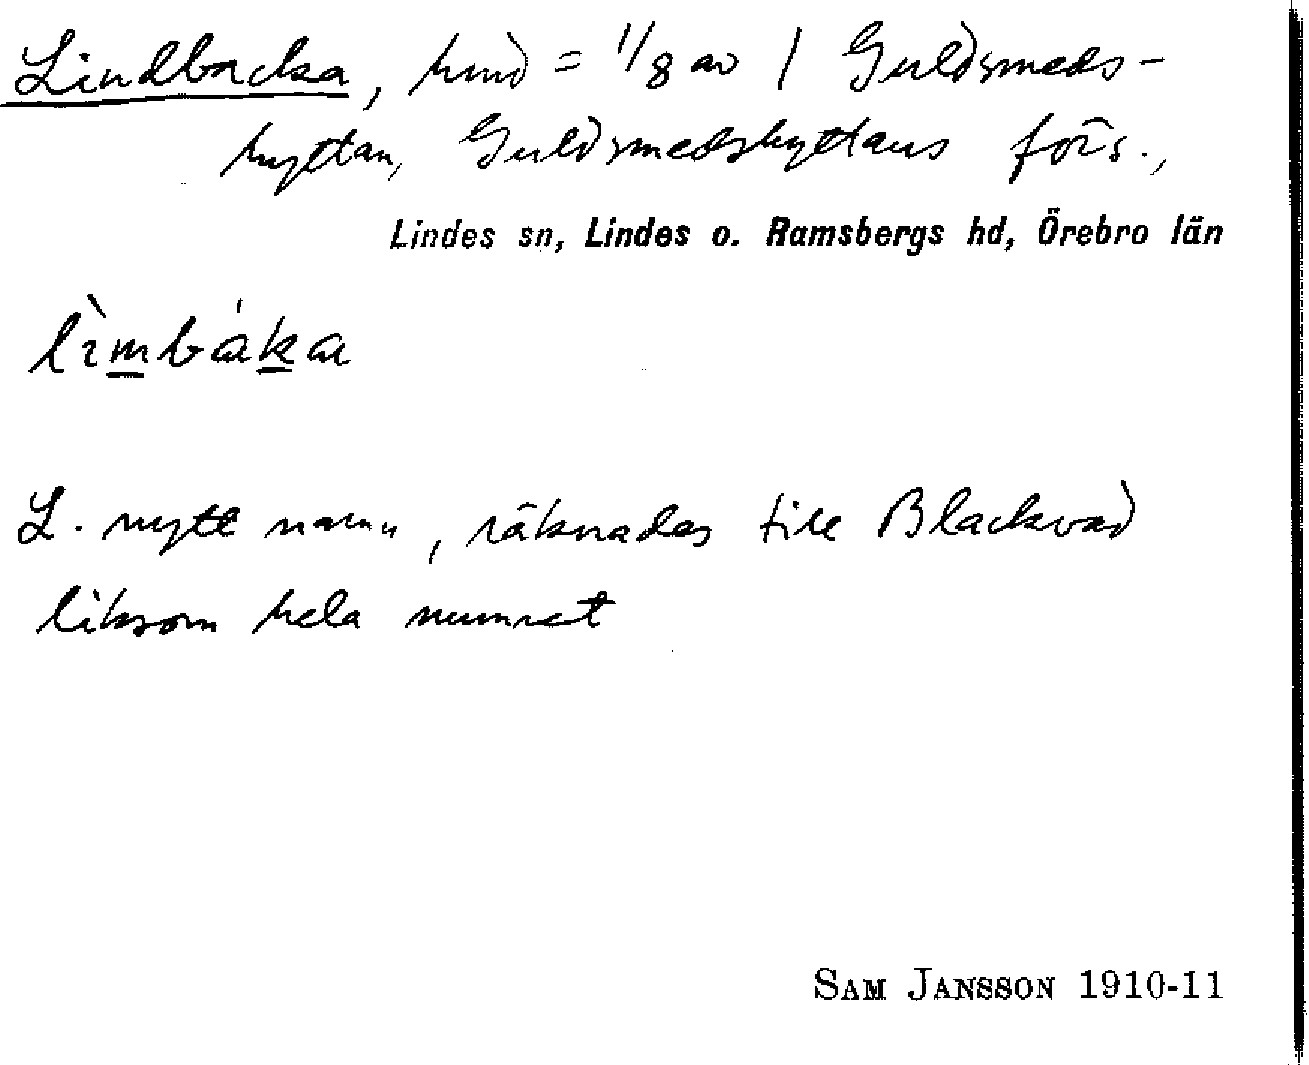 Lindbacka, hmd = 1/8 av 1 Guldsmeds-
hyttan, Guldsmedshyttans förs.,
Lindes sn, Lindes o. Ramsbergs hd, Örebro län
lìmbáka
L. nytt namn, räknades till Blackvad
liksom hela numret
SAM JANSSON 1910-11